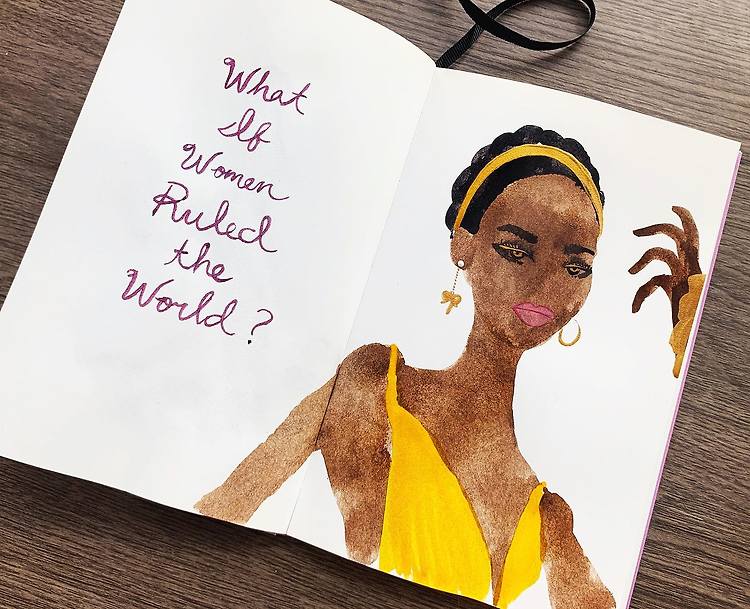 What
If
Women
Ruled
the
World?